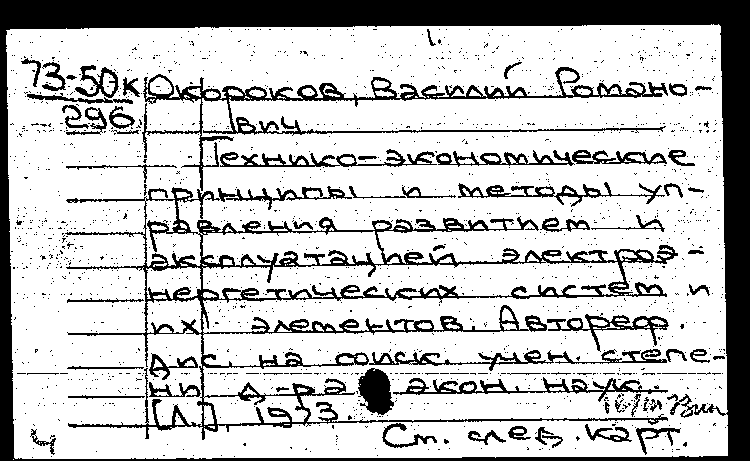 1.
73-50к Окороков, Василий Романо-
296 вич.
Технико-экономические
принципы и методы уп-
равления развитием и
эксплуатацией электроэ-
нергетических систем и
их элементов. Автореф.
дис. на соиск. учен. степе-
ни д-ра экон. наук.
[Л.], 1973.
См. след. карт.
4